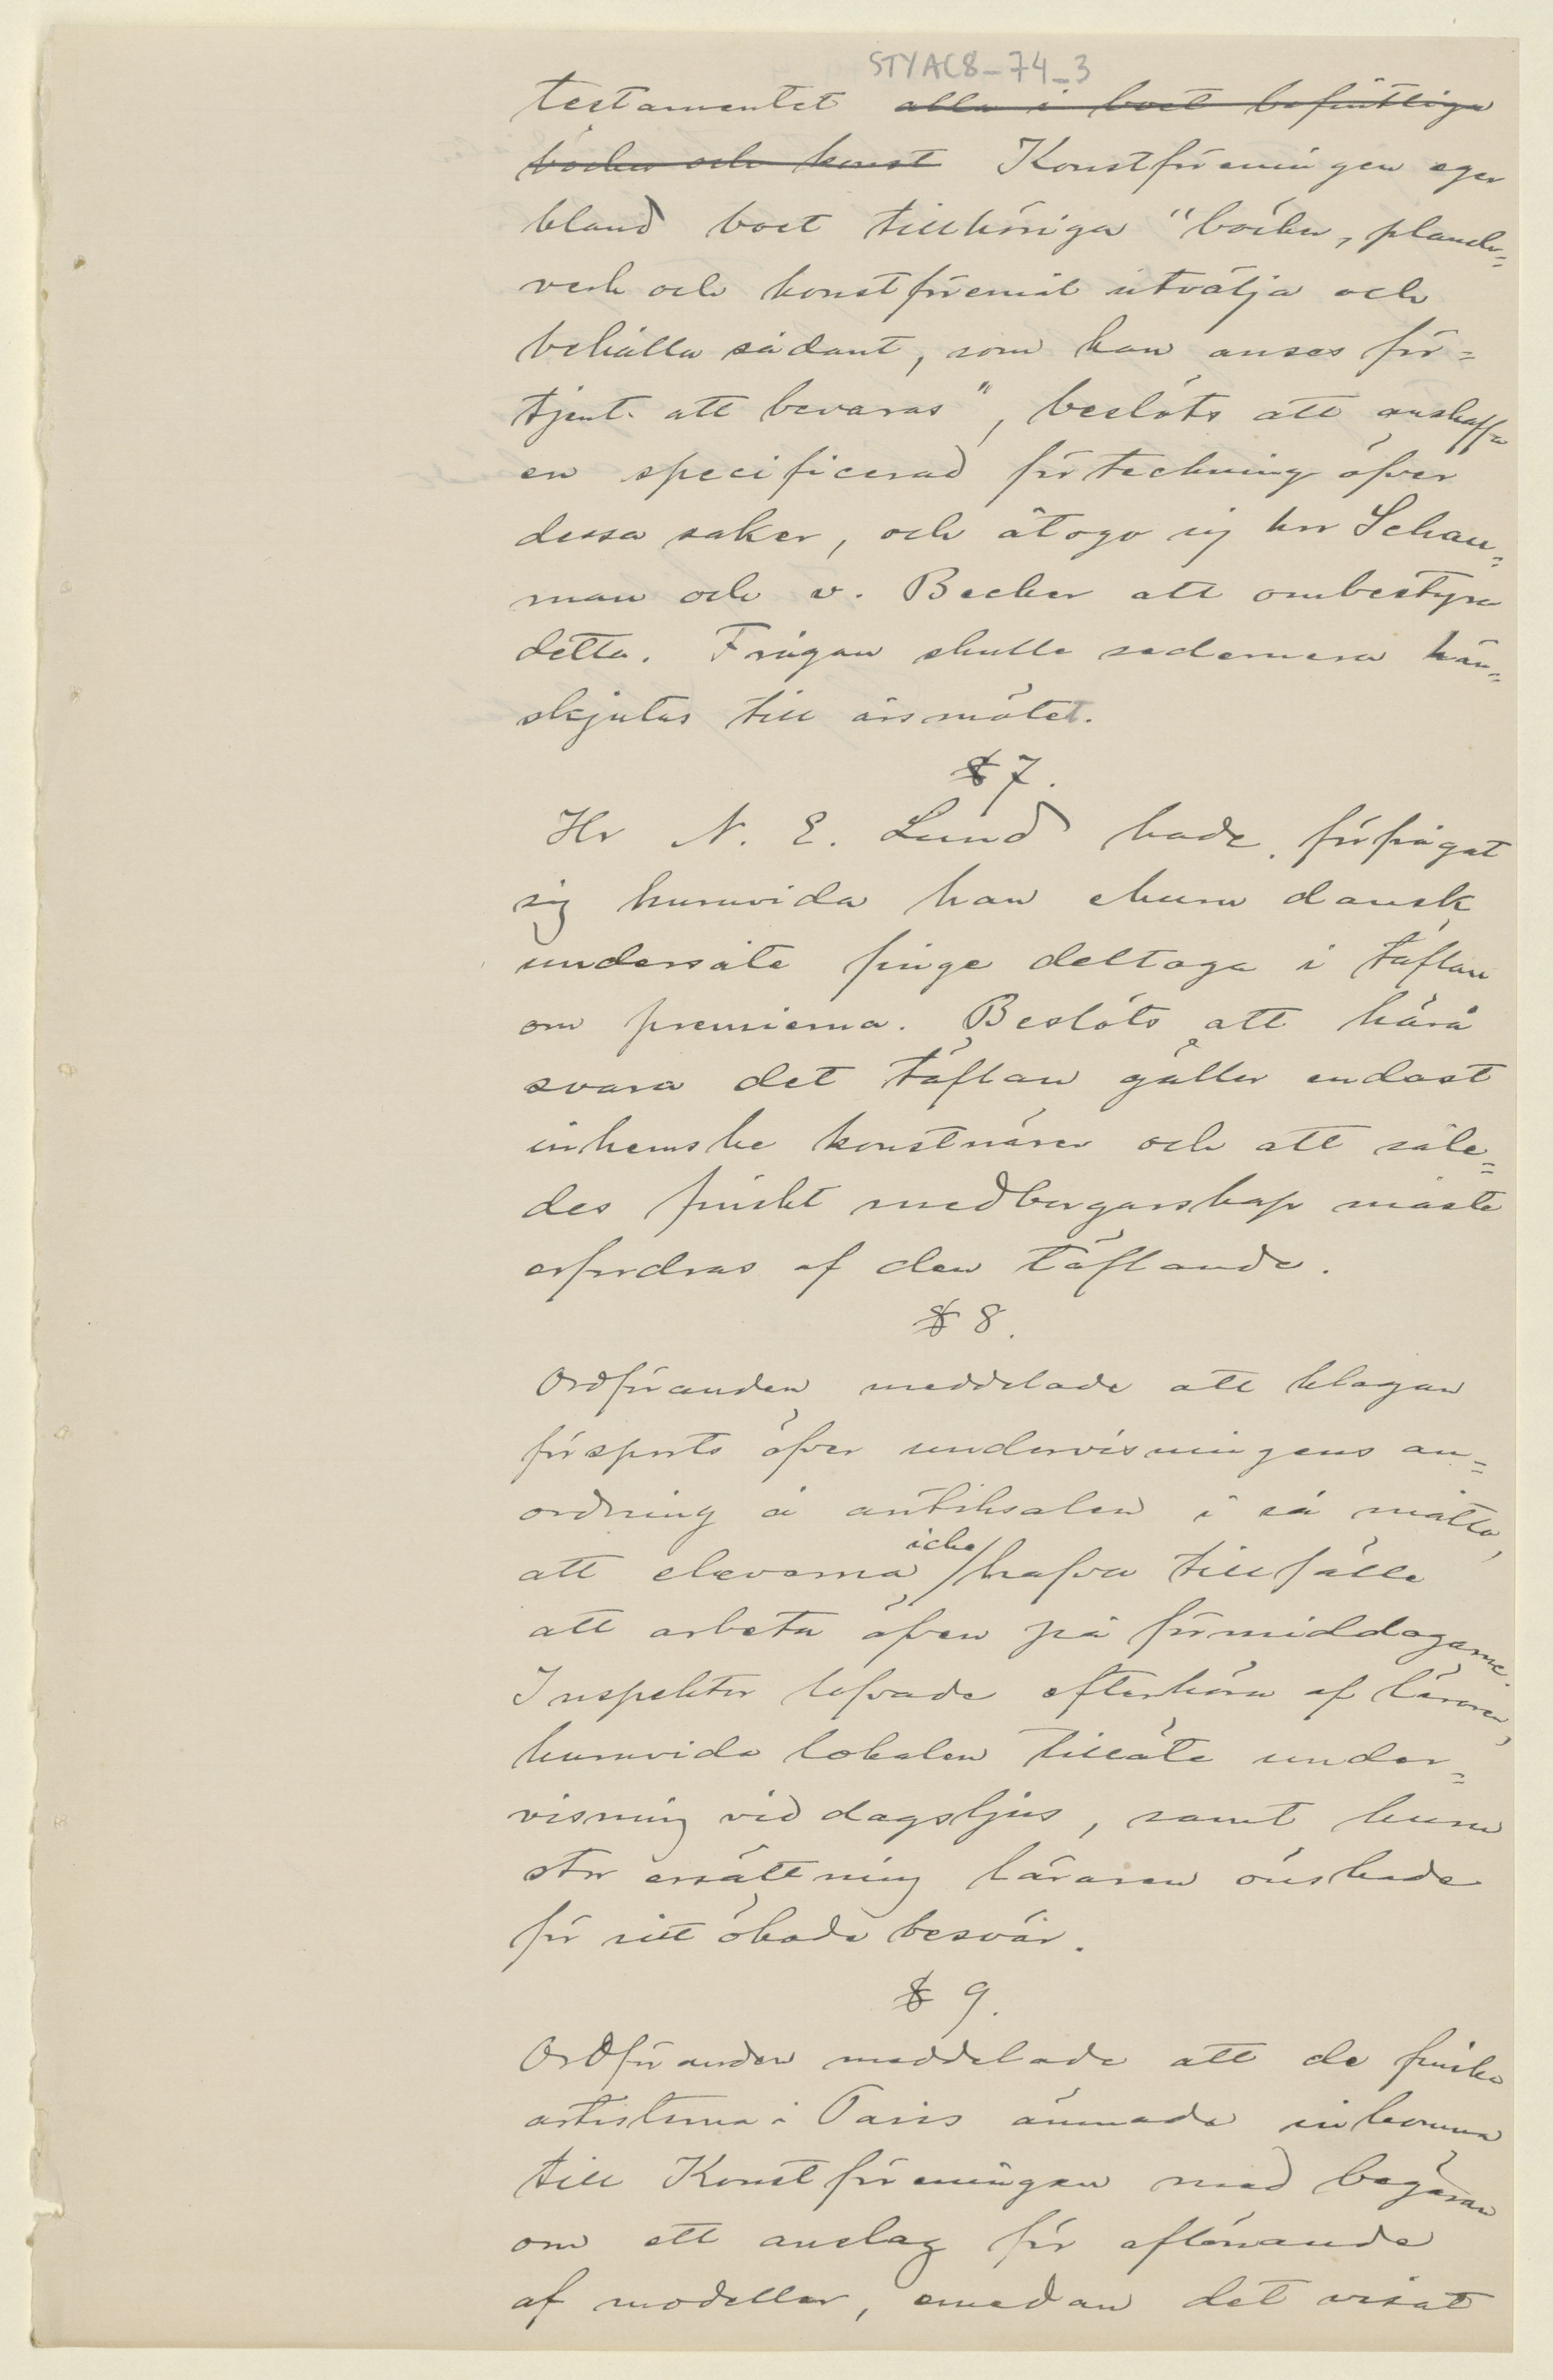 STYAC8_74_3
testamentet alla i boet befintliga
böcker och konst Konstföreningen eger
bland boet tillhöriga "böcker, planch=
verk och konstföremål utvälja och
behålla sådant, som kan anses för=
tjent att bevaras", beslöts att anskaffa
en specificerad förteckning öfver
dessa saker, och åtogo sig hrr Schau=
man och v. Becker att ombestyra
detta. Frågan skulle sedermera hän=
skjutas till årsmötet.
§ 7.
Hr N. E. Lund hade förfrågat
sig huruvida han ehuru dansk
undersåte finge deltaga i täflan
om premierna. Beslöts att härå
svara det täflan gäller endast
inhemske konstnärer och att såle=
des finskt medborgarskap måste
erfordras af den täflande.
§ 8.
Ordföranden meddelade att klagan
försports öfver undervisningens an=
ordning å antiksalen i så måtto,
att eleverna icke/hafva tillfälle
att arbeta äfven på förmiddagarne.
Inspektor lofvade efterhöra af läraren,
huruvida lokalen tilläte under=
visning vid dagsljus, samt huru
stor ersättning läraren önskade
för sitt ökade besvär.
§ 9.
Ordföranden meddelade att de finska
artisterna i Paris ämnade inkomma
till Konstföreningen med begäran
om ett anslag för aflönande
af modeller, emedan det visat